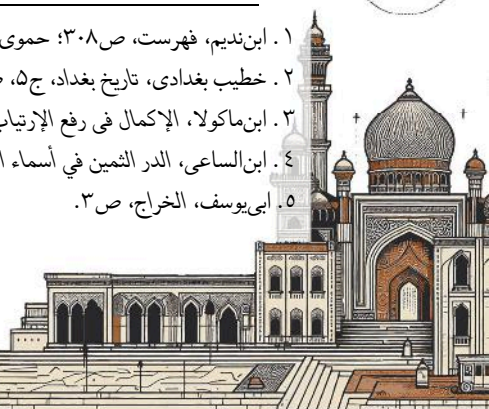 ١. ابن‌ندیم، فهرست، ص٣٠٨؛ حموی
٢. خطیب بغدادی، تاریخ بغداد، ج٥،
٣. ابن‌ماکولا، الإکمال فی رفع الإرتیاب
٤. ابن‌الساعی، الدر الثمین في أسماء
٥. ابی‌یوسف، الخراج، ص٣.